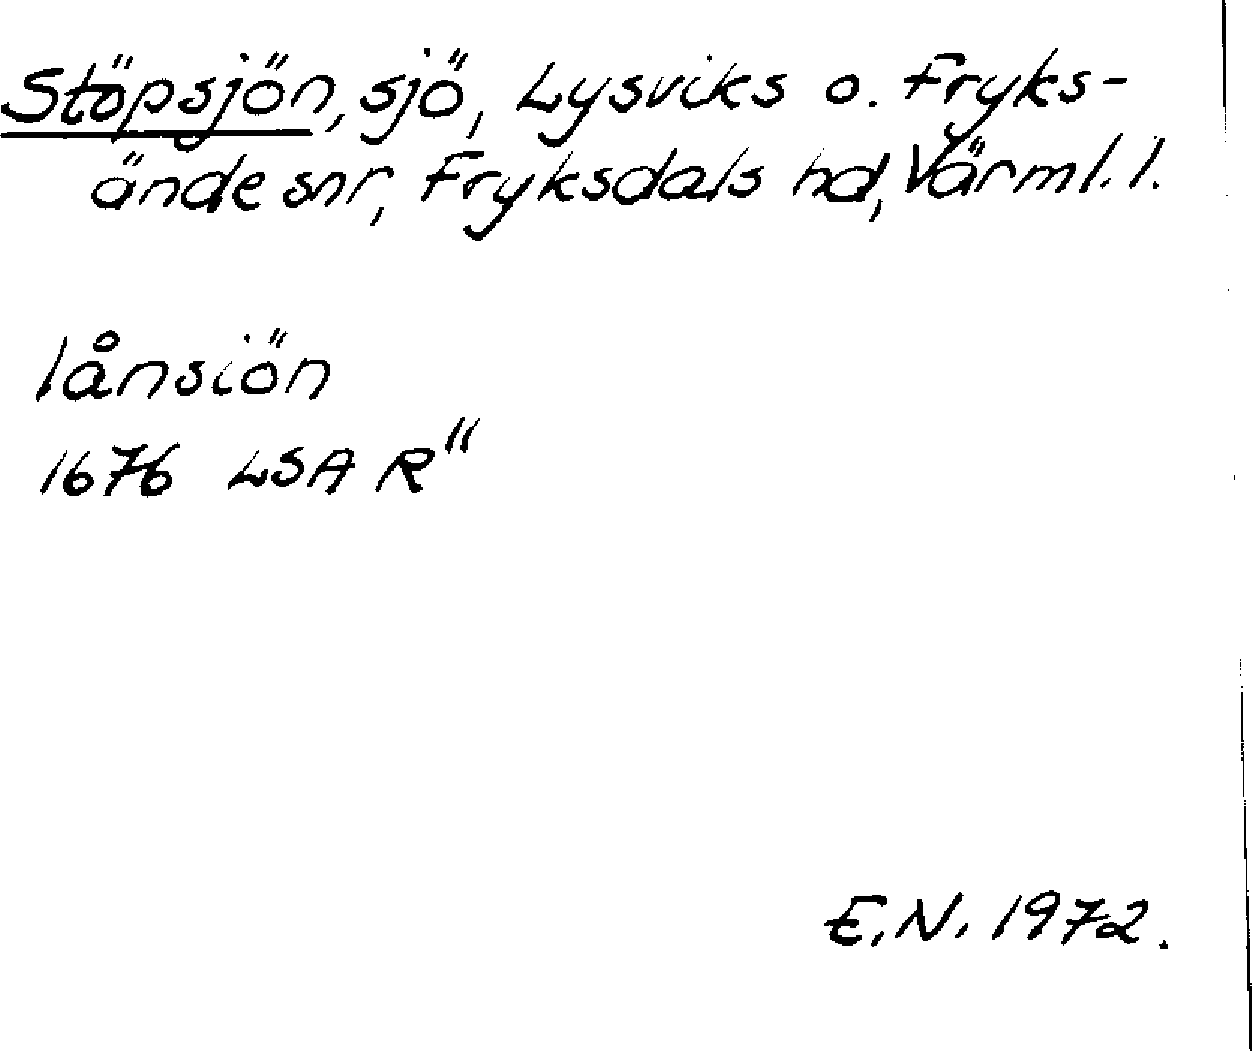 Stöpsjön, sjö, Lysviks o. Fryks-
ände snr, Fryksdals hd, Värml. l.
lånsiön
1676 LSA R"
E.N. 1972.